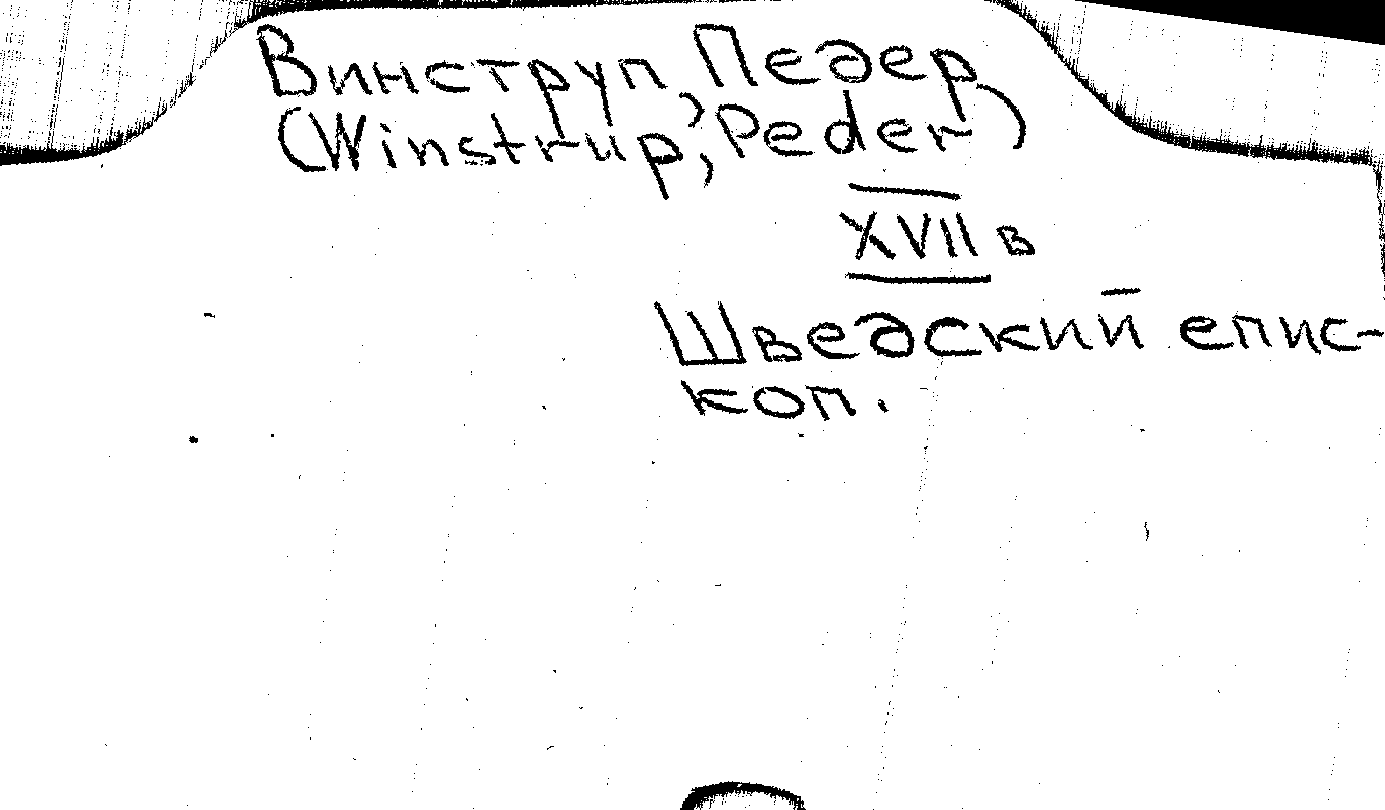 Винструп, Педер
(Winstrup, Peder)
XVII в
Шведский епис-
коп.